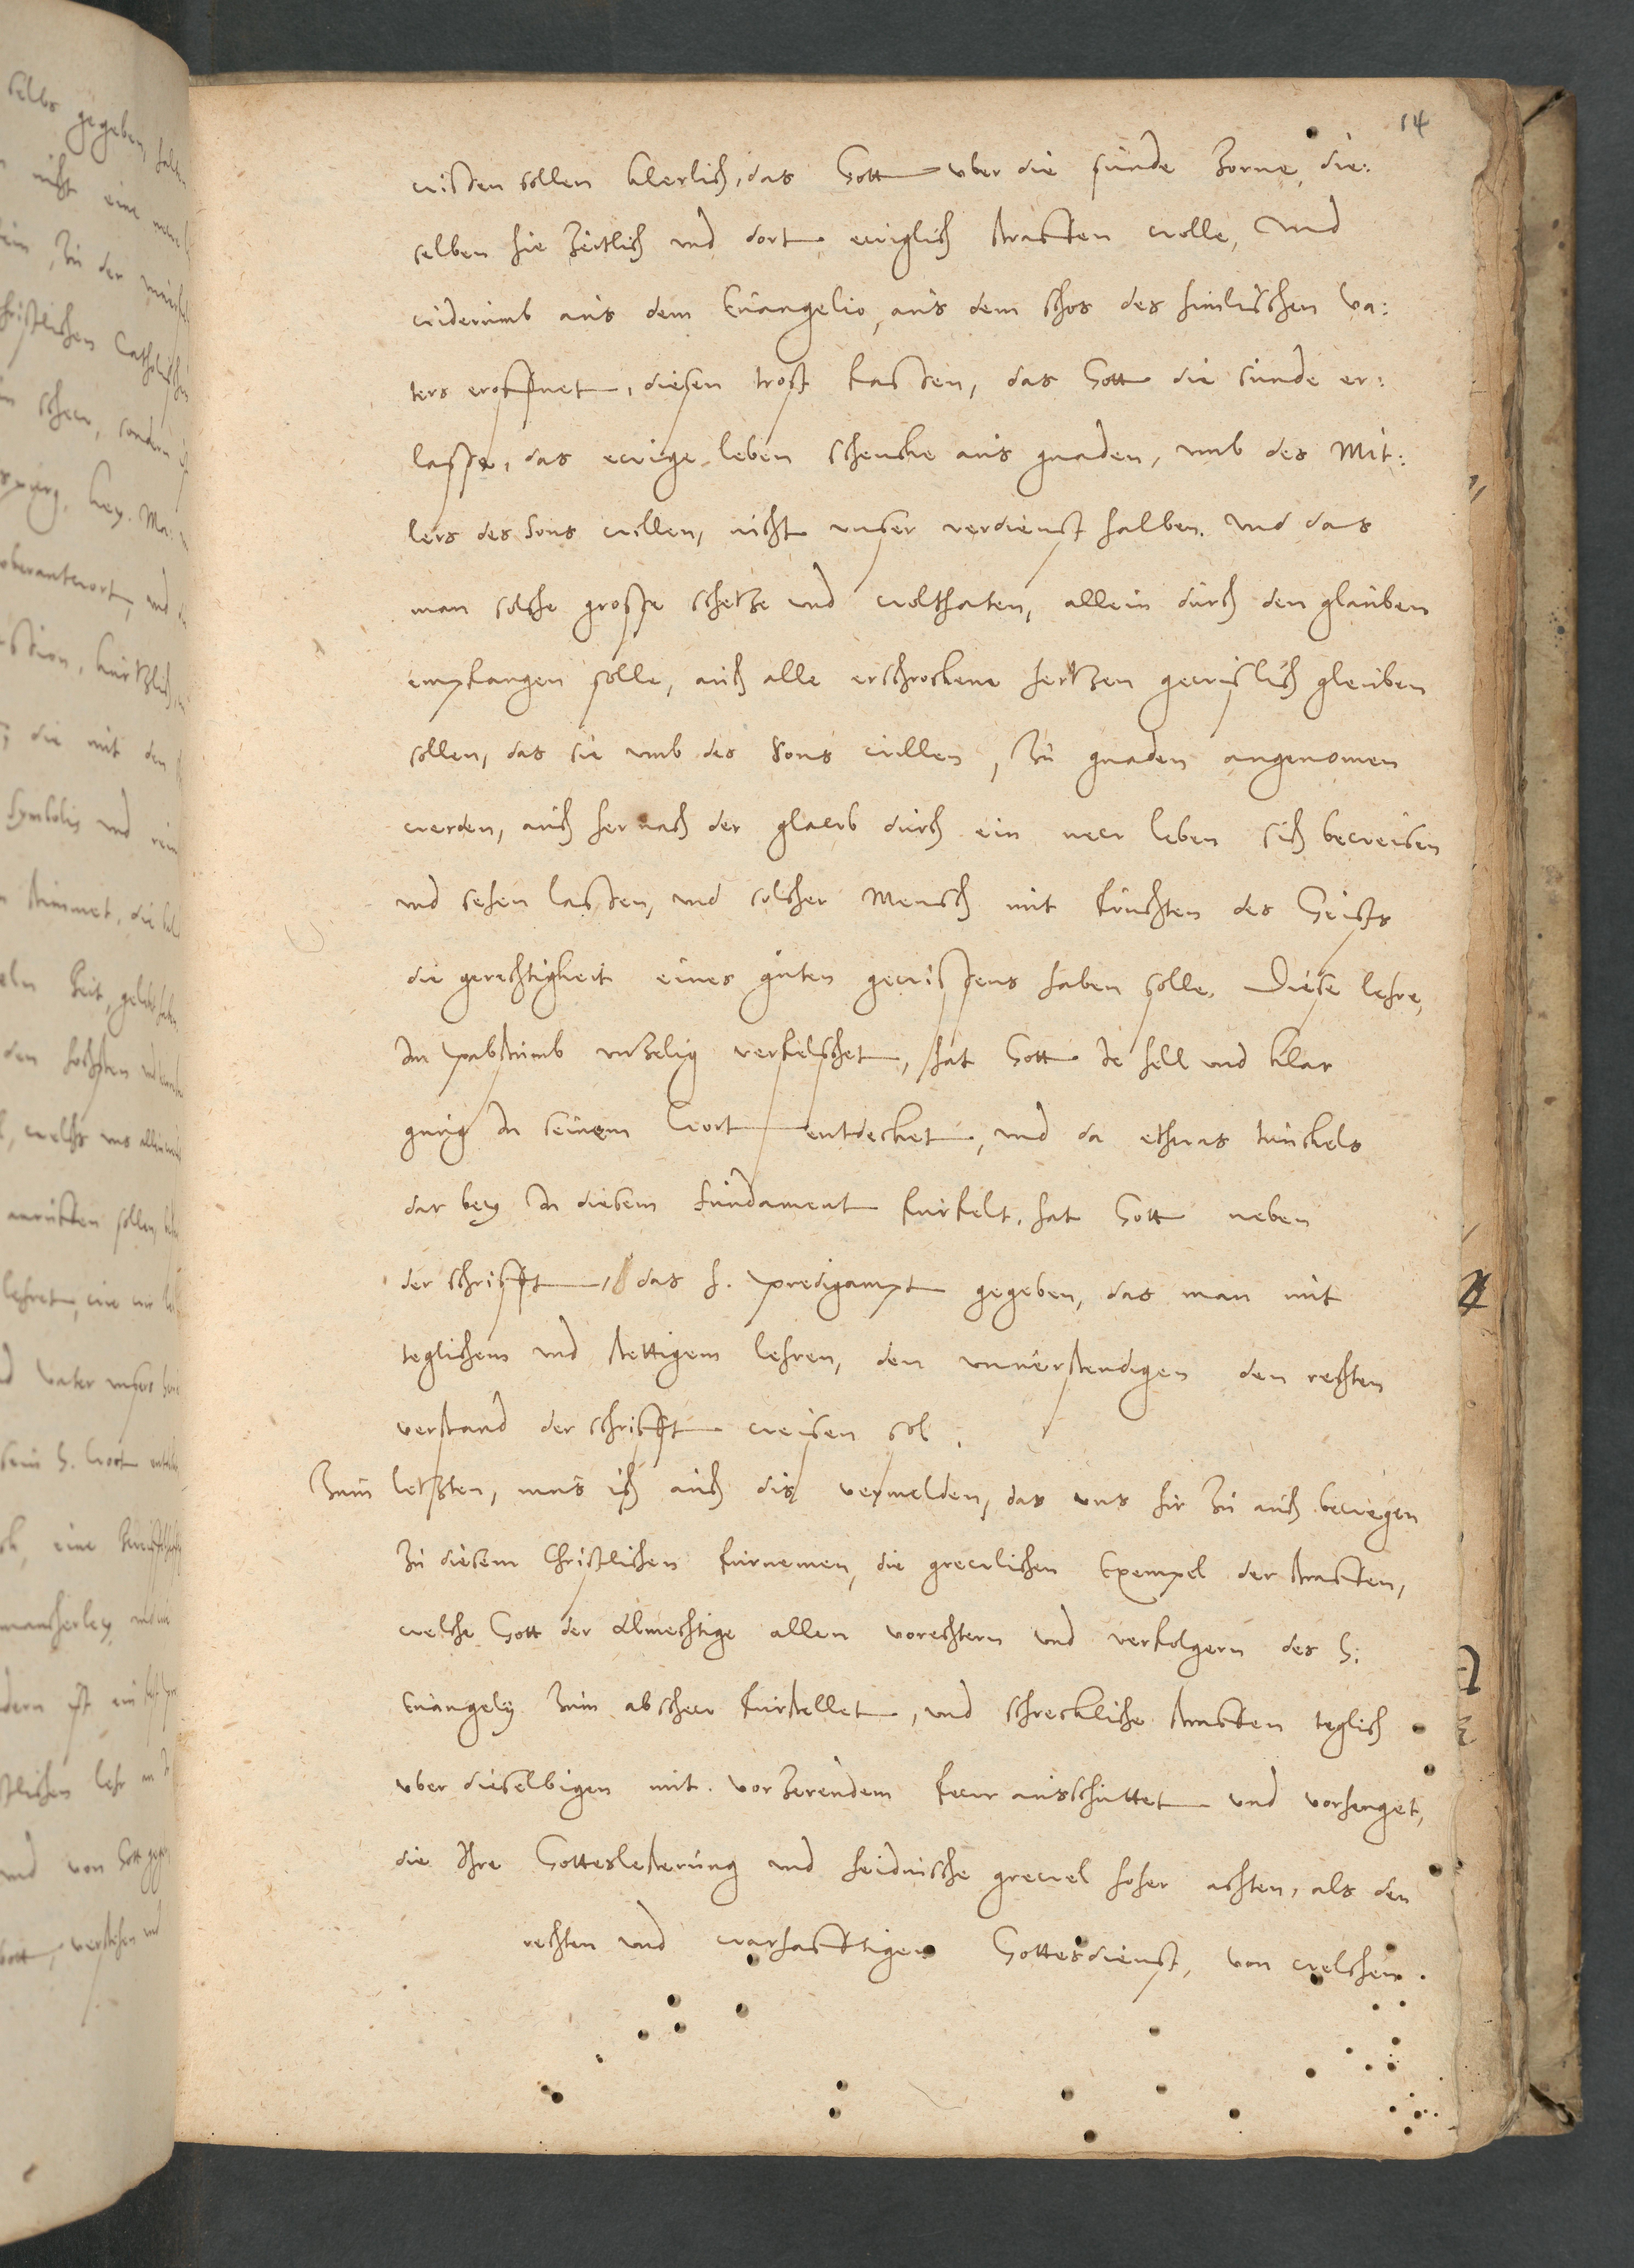 14
wissen sollen klerlich, das Gott vber die sunde zorne, die:
selben hie zeitlich vnd dort ewiglich straffen wolle, Vnd
widerumb aus dem Euangelio, aus dem schos des himlischen Va:
ters eroffnet, diesen trost fassen, das Gott die sunde er:
lasse, das ewige leben schencke aus gnaden, vmb des Mit:
lers des Sons willen, nicht vnser verdienst halben. Vnd das
man solche grosse schetze vnd wolthaten, allein durch den glauben
empfangen solle, auch alle erschrockene hertzen gewislich gleuben
sollen, das sie vmb des Sons willen, zu gnaden angenomen
werden, auch hernach der glawb durch ein new leben sich beweisen
vnd sehen lassen, vnd solcher Mensch mit fruchten des Geists
die gerechtigkeit eines guten gewissens haben solle. Diese lehre,
In Pabstumb vnzelig verfelschet, hat Gott Ja hell vnd klar
gnug In seinem Wort entdecket, vnd da ethwas tunckels
dar bey In diesem fundament furfelt, hat Gott neben
der schrifft, das h. Predigampt gegeben, das man mit
teglichem vnd stettigem lehren, den vnuerstendigen den rechten
verstand der schrifft weisen sol.
Zum letzten, mus ich auch dis vermelden, das vns hir zu auch bewegen
zu diesem Christlichen furnemen, die grewlichen Exempel der straffen,
welche Gott der Almechtige allen vorechtern vnd verfolgern des H.
Euangelij zum abschew furstellet, vnd schreckliche straffen teglich
vber dieselbigen mit vorzerendem fewr ausschuttet vnd vorhenget,
die Ihre Gotteslesterung vnd heidnische grewel hoher achten, als den
rechten vnd warhafftigen Gottesdienst, von welchem